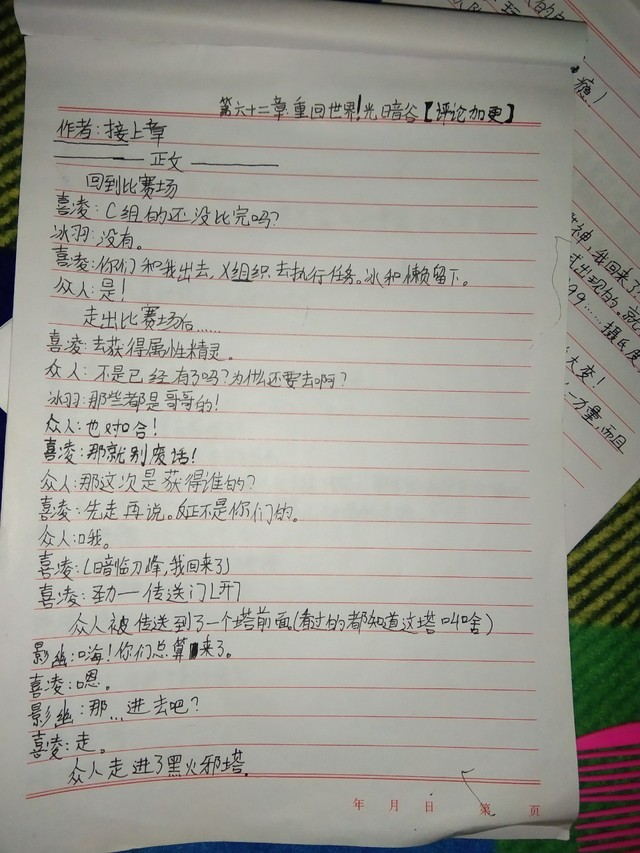 第六十二章:重回世界!光暗谷【评论加更】
作者:接上章
——— 正文 ———
回到比赛场
喜凌:C组的还没比完吗?
冰羽:没有。
喜凌:你们和我出去,X组织去执行任务。冰和懒留下。
众人:是!
走出比赛场后……
喜凌:去获得属性精灵。
众人:不是已经有了吗?为什么还要去啊?
冰羽:那些都是哥哥的!
众人:也对哈!
喜凌:那就别废话!
众人:那这次是获得谁的?
喜凌:先走再说。反正不是你们的。
众人:哦。
喜凌:(暗临刀峰,我回来了)
喜凌:劲一传送门开
众人被传送到了一个塔前面(看过的都知道这塔叫啥)
影幽:嗨!你们总算来了。
喜凌:嗯。
影幽:那…进去吧?
喜凌:走。
众人走进了黑火邪塔.
年 月 日 第 页
神,我回来了
出现的。
99……摄氏度
大变!
力量,而且